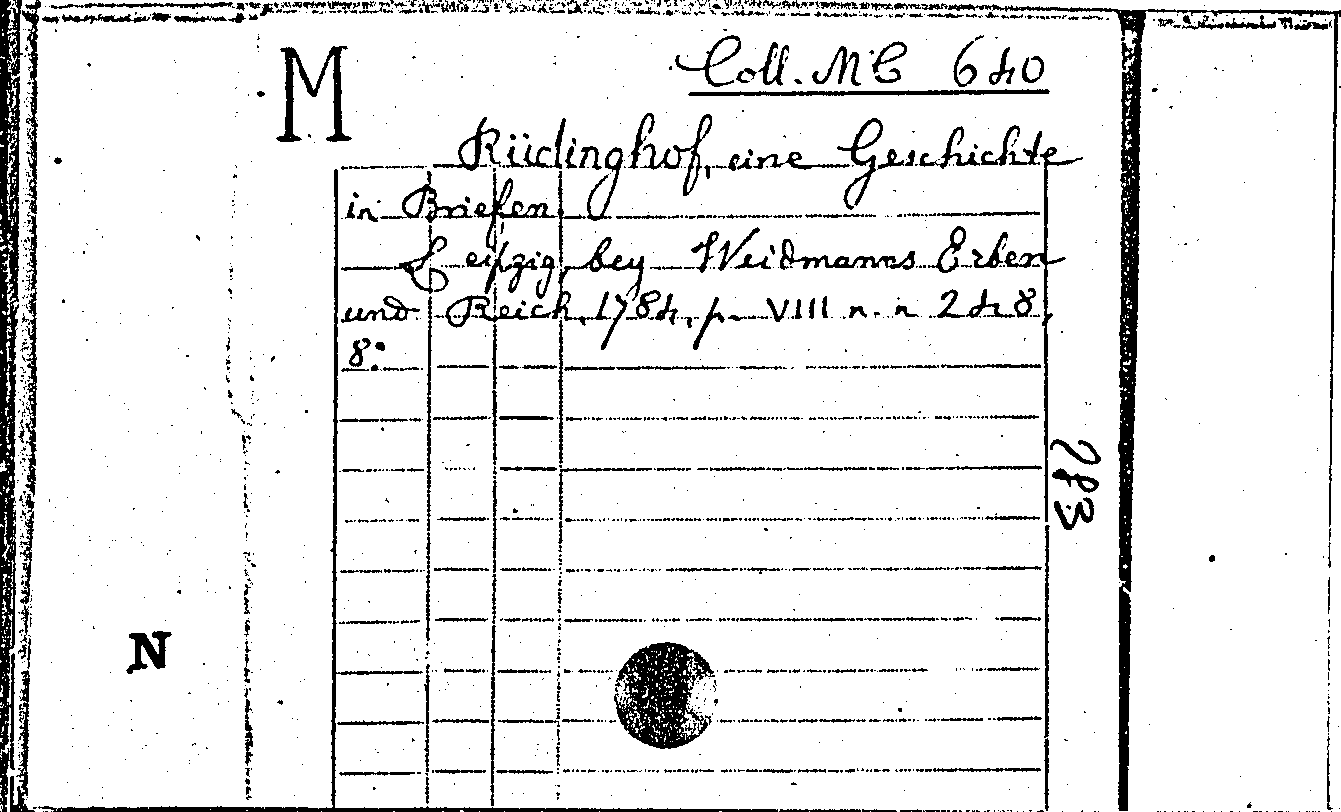 M
Coll. MC 640
Rüdinghof, eine Geschichte
in Briefen.
Leipzig, bey Weidmanns Erben
und Reich, 1784, p. VIII n. n 248,
8:
283
N